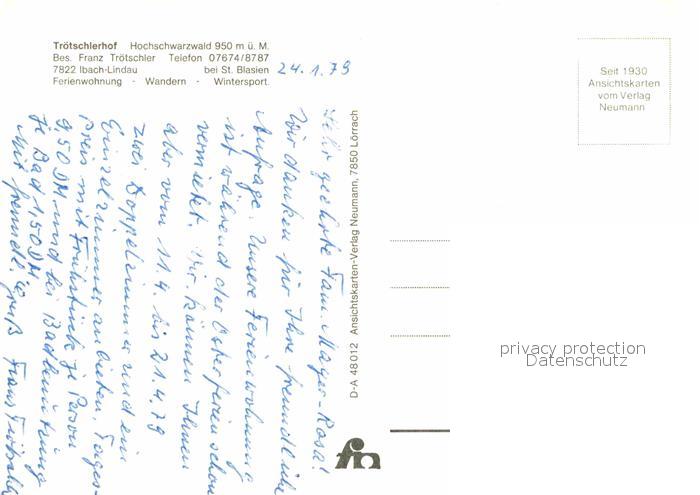 Trötschlerhof Hochschwarzwald 950 m ü. M.
Bes. Franz Trötschler Telefon 07674/8787
7822 Ibach-Lindau bei St. Blasien
Ferienwohnung - Wandern - Wintersport.
24.1.79
Sehr geehrte Fam. Mayer-Rosa!
Wir danken für Ihre freundliche
Anfrage. Unsere Ferienwohnung
ist während der Osterferien schon
vermietet. Wir können Ihnen
aber vom 11.4. bis 21.4.79
zwei Doppelzimmer und ein
Einzelzimmer anbieten. Tages-
preis mit Frühstück je Person
9,50 DM und bei Badbenützung
je Bad 1,50 DM
Mit freundl. Gruß Franz Trötschler
D-A 48012 Ansichtskarten-Verlag Neumann, 7850 Lörrach
Seit 1930
Ansichtskarten
vom Verlag
Neumann
privacy protection
Datenschutz
fn